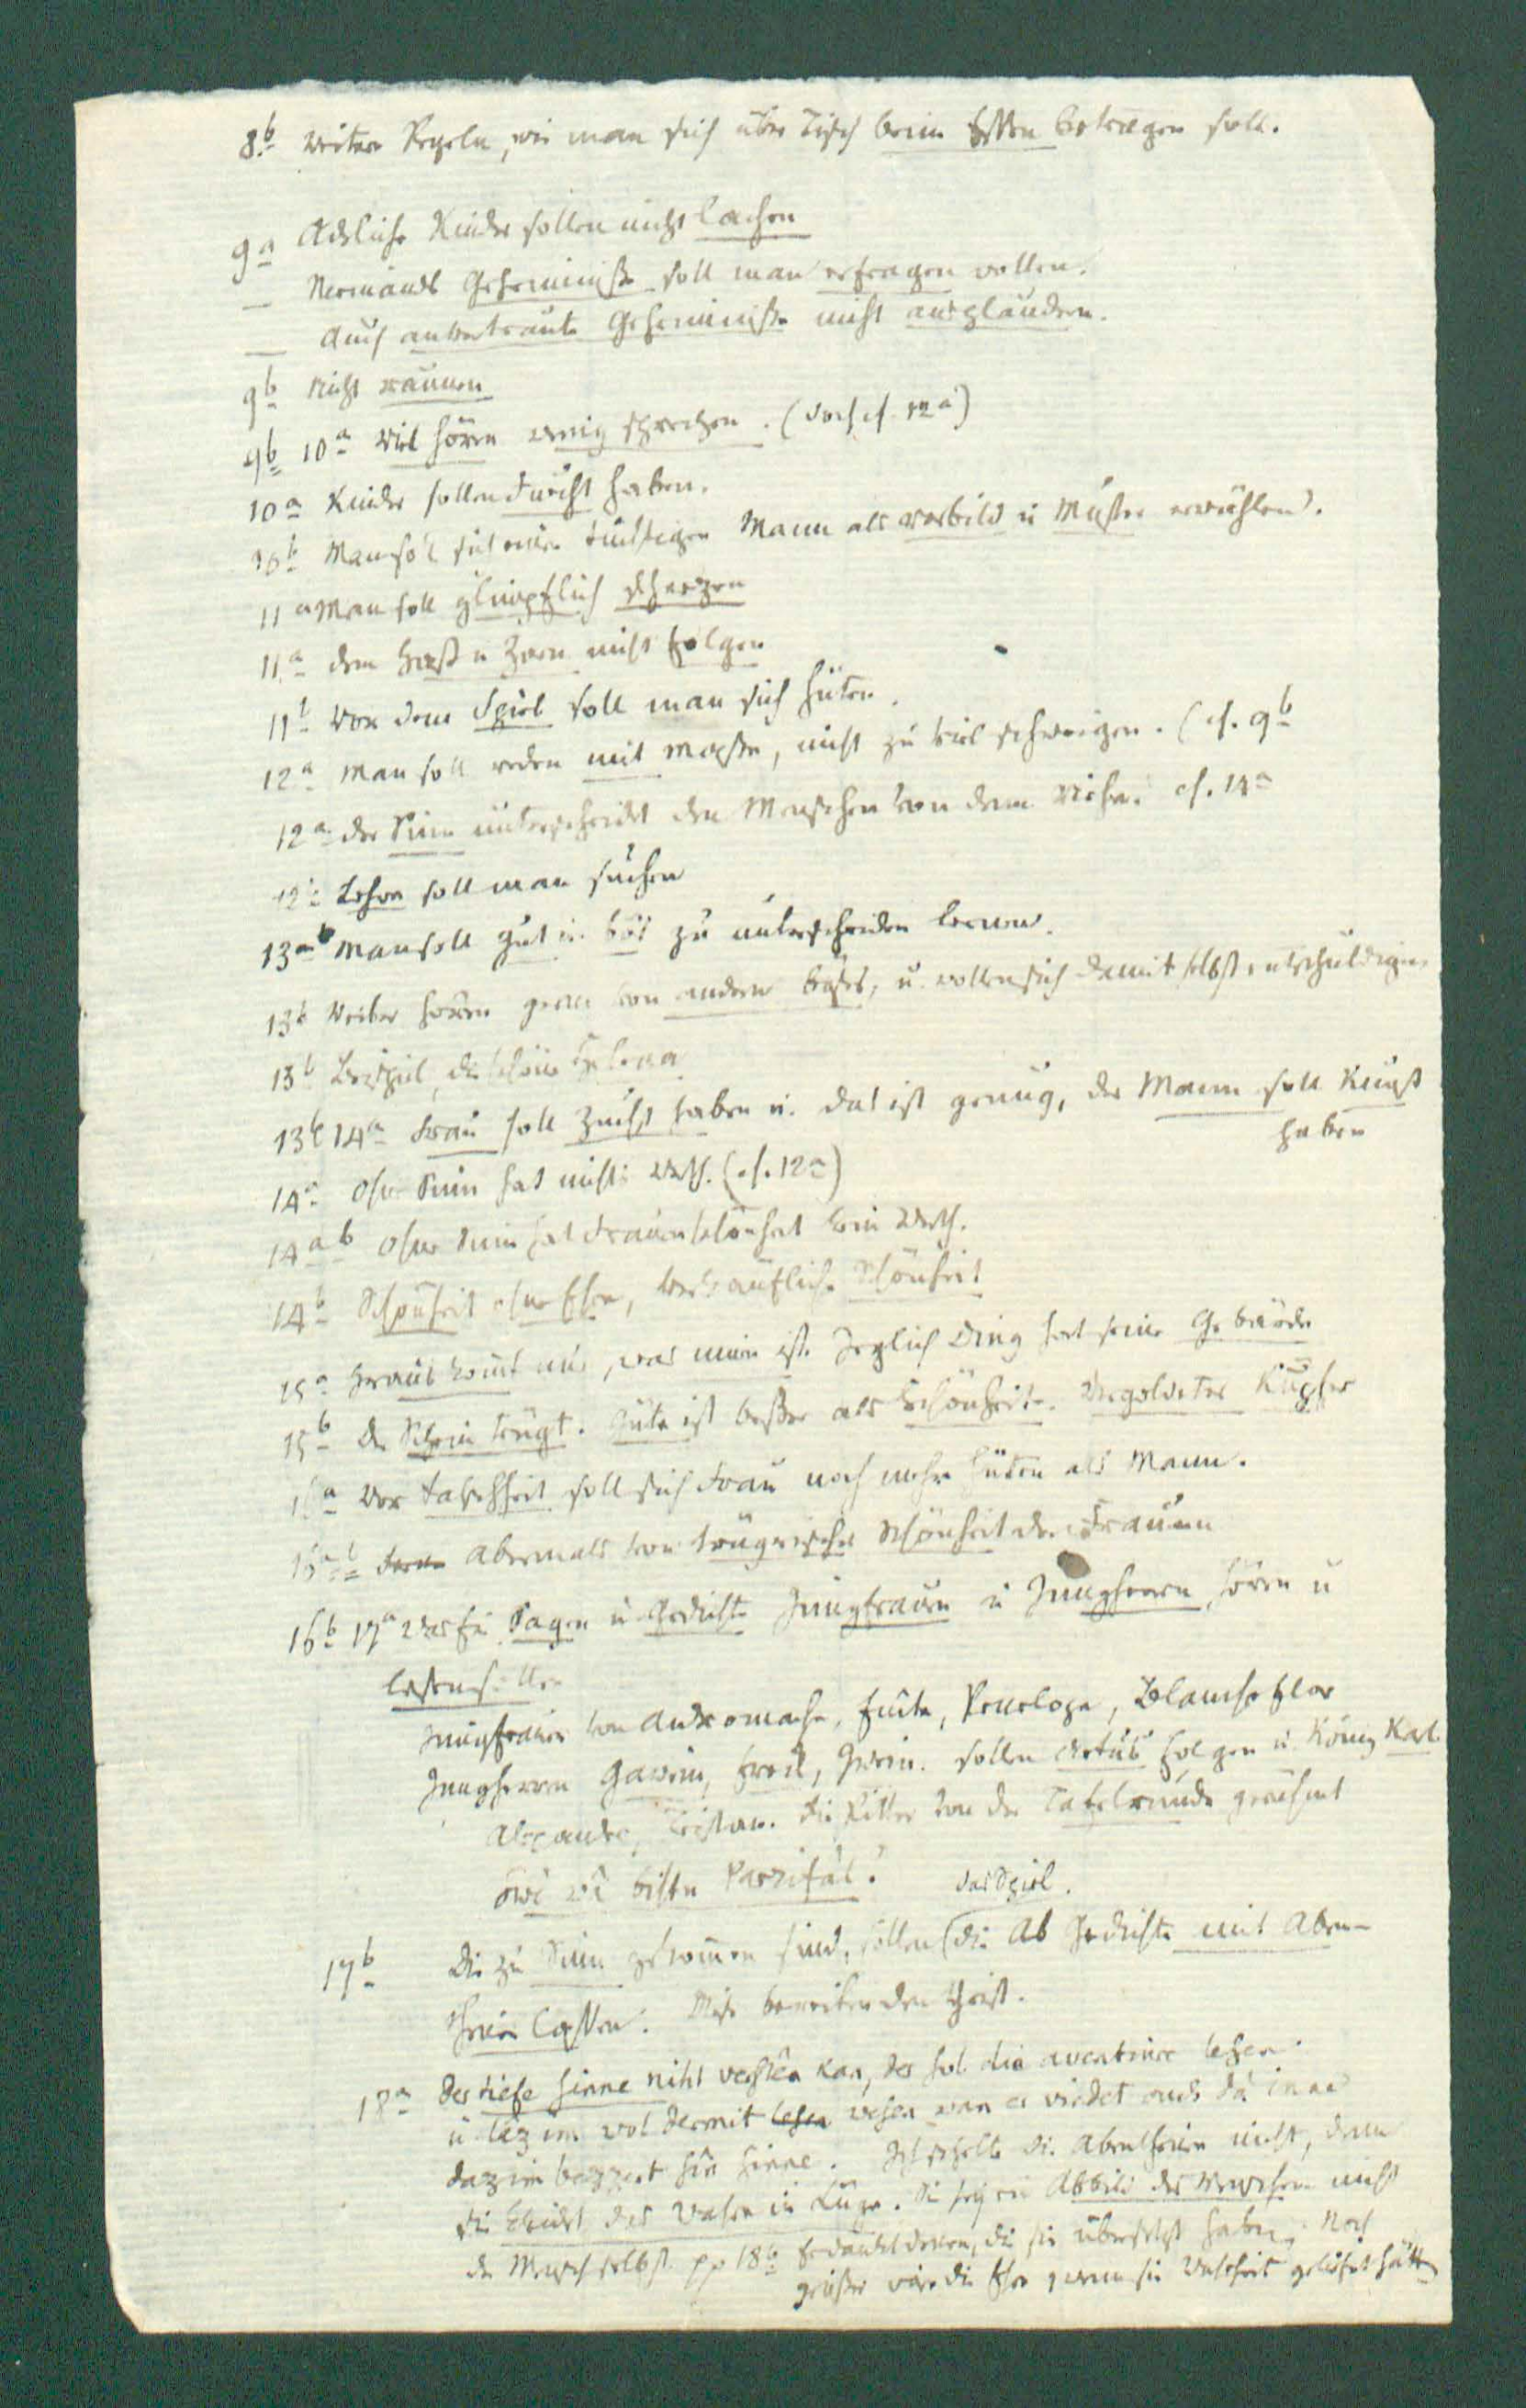 8b weitere Regeln, wie man sich über Tisch beim Essen betragen soll.
9a Adeliche Kinder sollen nicht lachen
— Niemands Geheimniße soll man erfragen wollen.
— Auch anvertraute Geheimniße nicht ausplaudern.
9b Nicht raunen
9b 10a Viel hören wenig sprechen. (doch cf. 12a)
10a Kinder sollen Furcht haben.
10b Man soll sich einen tüchtigen Mann als Vorbild u Muster erwählen.
11a Man soll glimpflich scherzen
11a dem Haß u Zorn nicht folgen
11b Vor dem Spiel soll man sich hüten.
12a Man soll reden mit Maße, nicht zu viel schweigen. (cf. 9b
12a der Sinn unterscheidet den Menschen von dem Viehe. cf. 14a
12b Lehre soll man suchen
13ab Man soll gut u. bös zu unterscheiden lernen.
13b Weiber hören gerne von andern böses, u. wollen sich damit selbst entschuldigen
13b Beispiel, die schöne Helena
13b 14a Frau soll Zucht haben u. das ist genug, der Mann soll Kunst
haben
14a Ohne Sinn hat nichts Werth. (cf. 12a)
14ab Ohne Sinn hat Frauenschönheit kein Werth.
14b Schönheit ohne Ehre, verkäufliche Schönheit
15a heraus kommt nur, was innen ist. Jeglich Ding hat seine Gebärde
15b Der Schein trügt. Güte ist beßer als Schönheit. Vergoldetes Kupfer
16a Vor Falschheit soll sich Frau noch mehr hüten als Mann.
16ab Abermals von trügerischer Schönheit der Frauen
16b 17a Was für Sagen u Gedichte Jungfrauen u Jungherrn hören u
lesen sollen
Jungfrauen von Andromache, Enite, Penelope, Blanscheflor
Jungherren Gawein, Erek, Iwein. sollen Artus folgen u. König Karl
Alexander, Tristan. Die Ritter von der Tafelrunde gerühmt
Owê wâ bistu Parzifâl!
das Spiel.
17b Die zu Sinn gekommen sind, sollen die Ab Gedichte mit Aben-
theuer lassen. den Geist.
18a der tiefe sinne niht verstên kan, der sol die aventiure lesen
u lâz im wol dermit lesen wesen wan er vindet ouch dâ inne
daz im bezzert sîn sinne. Ich schelte die Abentheuer nicht, denn
sie das Wahre in Lüge. Sie seyen Abbild des Menschen nicht
der Mensch selbst. pp 18b Gedankt denen, die sie übersetzt haben. Noch
größer wäre die Ehre wenn sie Wahrheit gelichtet hätten